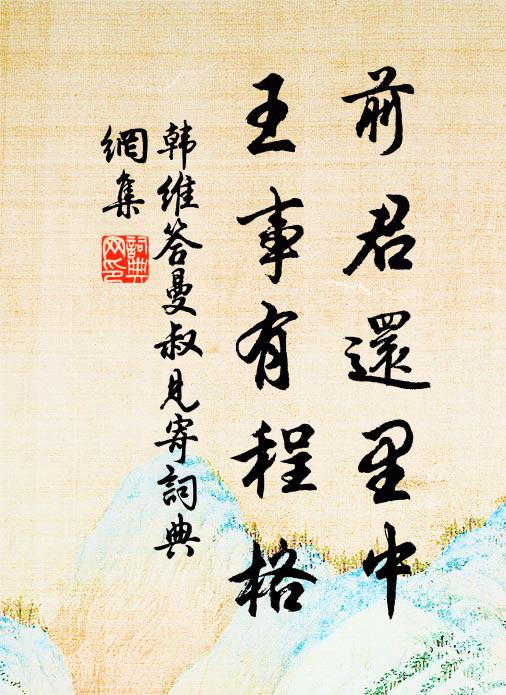 前君還里中
王事有程格
韩维答曼叔见寄词典
網集
詞典
网印